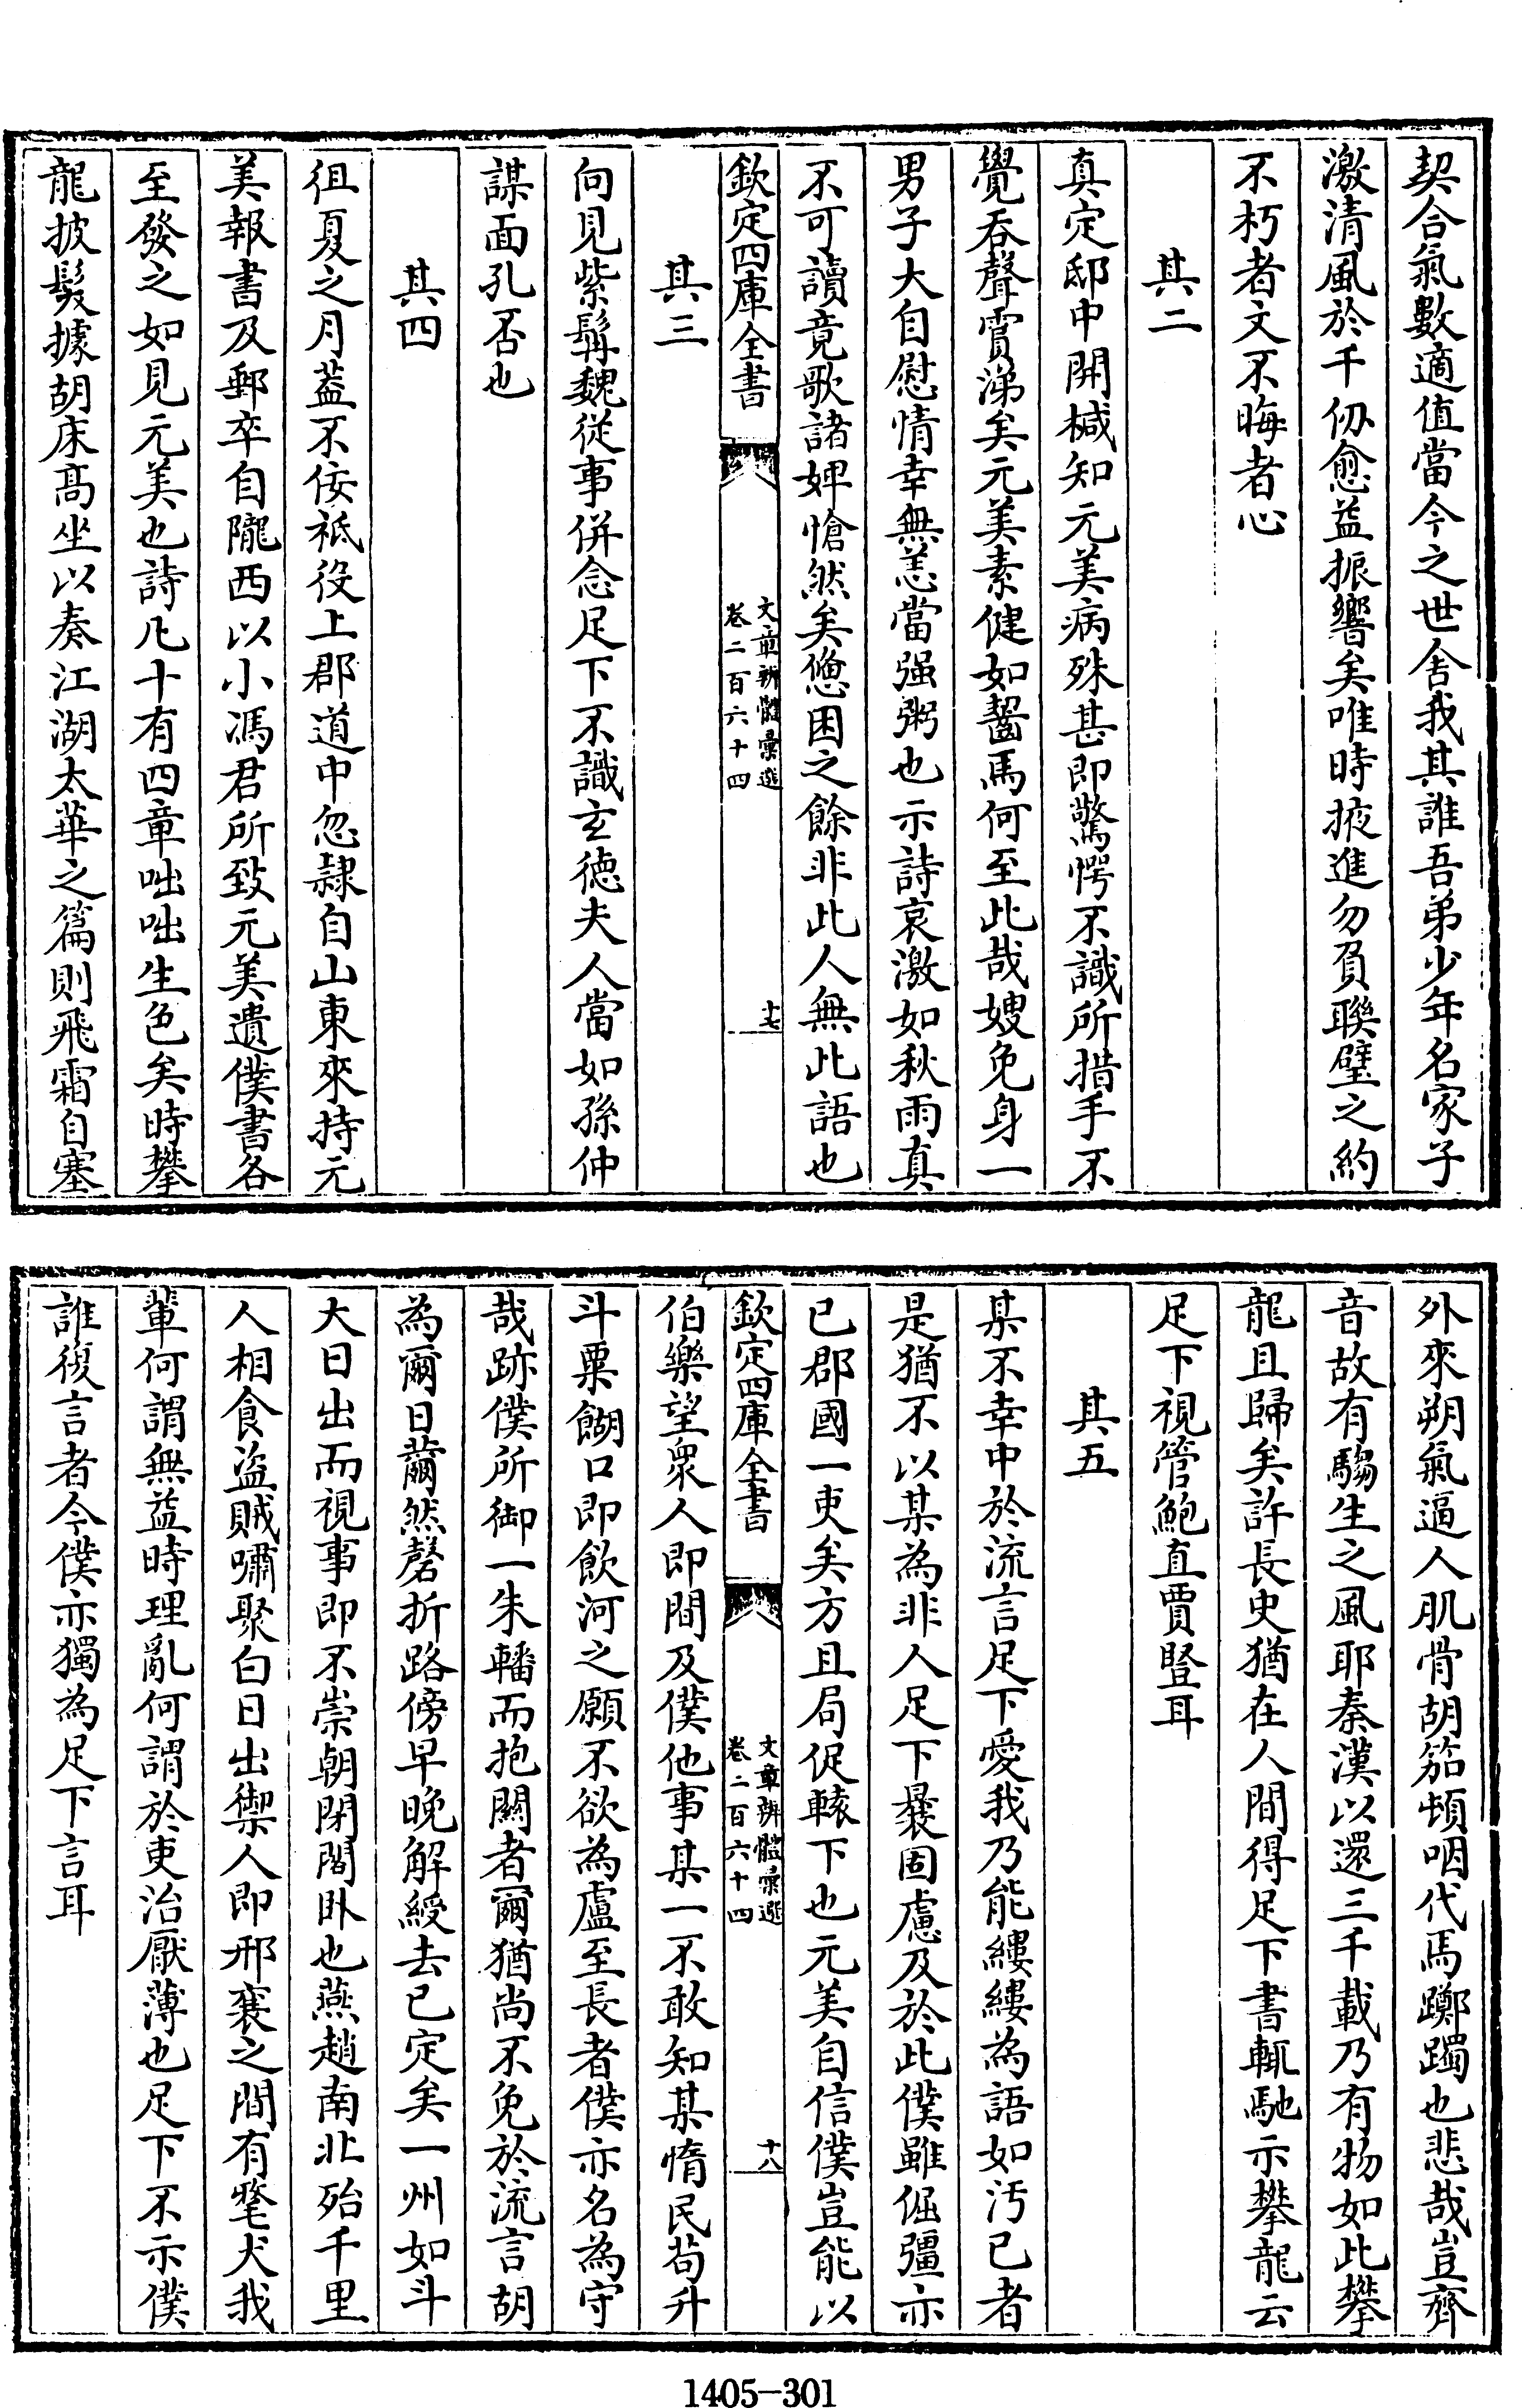 契合氣數適值當今之世舍我其誰吾弟少年名家子
激清風於千仞愈益振響矣唯時掖進勿負聯璧之約
不朽者文不晦者心
其二
真定邸中開椷知元美病殊甚即驚愕不識所措手不
覺吞聲賈涕矣元美素健如齧馬何至此哉嫂免身一
男子大自慰情幸無恙當强粥也示詩哀激如秋雨真
不可讀竟歌諸婢愴然矣憊困之餘非此人無此語也
欽定四庫全書
文章辨體彙選
卷二百六十四
十七
其三
向見紫髯魏從事併念足下不識玄德夫人當如孫仲
謀面孔否也
其四
徂夏之月蓋不佞祗役上郡道中忽隸自山東來持元
美報書及郵卒自隴西以小馮君所致元美遺僕書各
至發之如見元美也詩凡十有四章咄咄生色矣時攀
龍披髮據胡床髙坐以奏江湖太華之篇則飛霜自塞
外來朔氣逼人肌骨胡笳頓咽代馬躑躅也悲哉豈齊
音故有騶生之風耶秦漢以還三千載乃有物如此攀
龍且歸矣許長史猶在人間得足下書輒馳示攀龍云
足下視管鮑直賈豎耳
其五
某不幸中於流言足下愛我乃能縷縷為語如汚已者
是猶不以某為非人足下曩固慮及於此僕雖倔彊亦
已郡國一吏矣方且局促轅下也元美自信僕豈能以
欽定四庫全書
文章辨體彙選
卷二百六十四
十八
伯樂望衆人即間及僕他事某一不敢知某惰民苟升
斗粟餬口即飲河之願不欲為盧至長者僕亦名為守
哉跡僕所御一朱轓而抱關者爾猶尚不免於流言胡
為爾日薾然磬折路傍早晚解綬去已定矣一州如斗
大日出而視事即不崇朝閉閤卧也燕趙南北殆千里
人相食盜賊嘯聚白日出禦人即邢襄之間有氂犬我
輩何謂無益時理亂何謂於吏治厭薄也足下不示僕
誰復言者今僕亦獨為足下言耳
1405-301